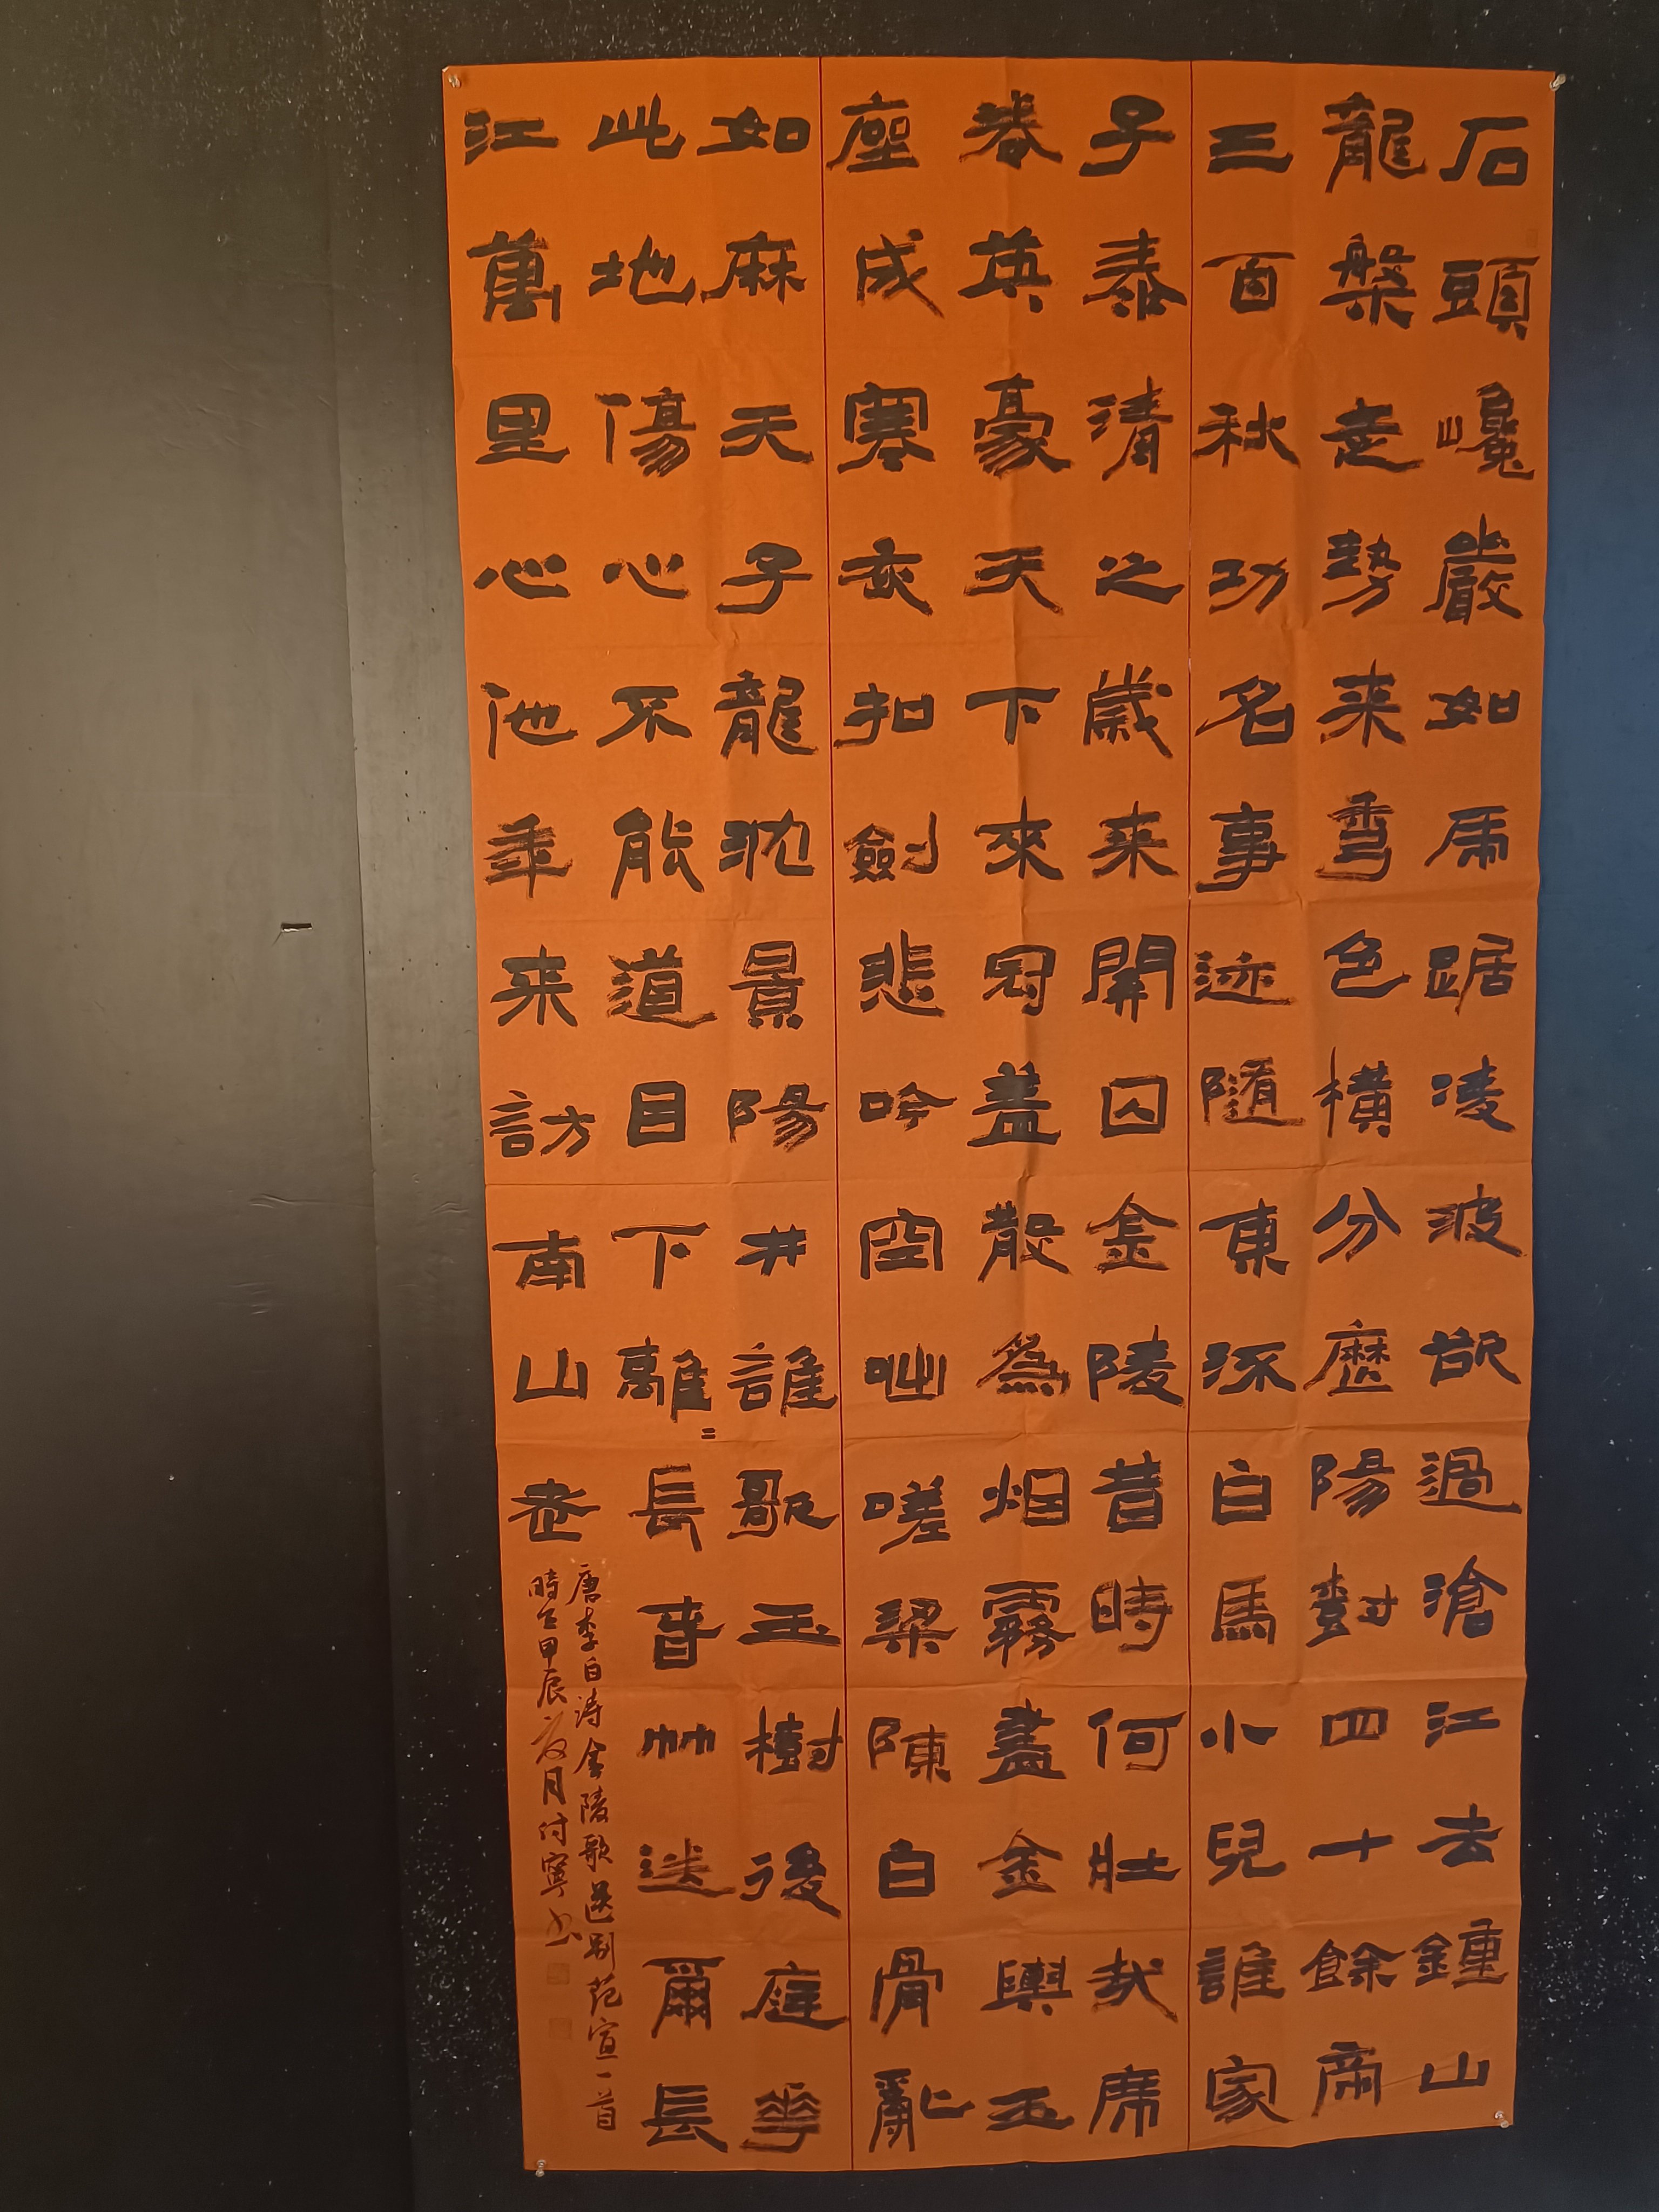 石頭巉巖如虎踞凌波欲過滄江去鍾山
龍槃走勢来秀色橫分歷陽對四十餘帝
三百秋功名事迹隨東流白馬小兒誰家
子泰清之歲来開囚金陵昔時何壯哉席
卷英豪天下來冠蓋散為烟霧盡金輿玉
座成寒灰扣劍悲吟空咄嗟梁陳白骨亂
如麻天子龍沈景陽井誰歌玉樹後庭華
此地傷心不能道目下離〻長春艸送爾長
江萬里心他年来訪南山老
唐李白詩金陵歌送別范宣一首
時在甲辰夏月付寧书